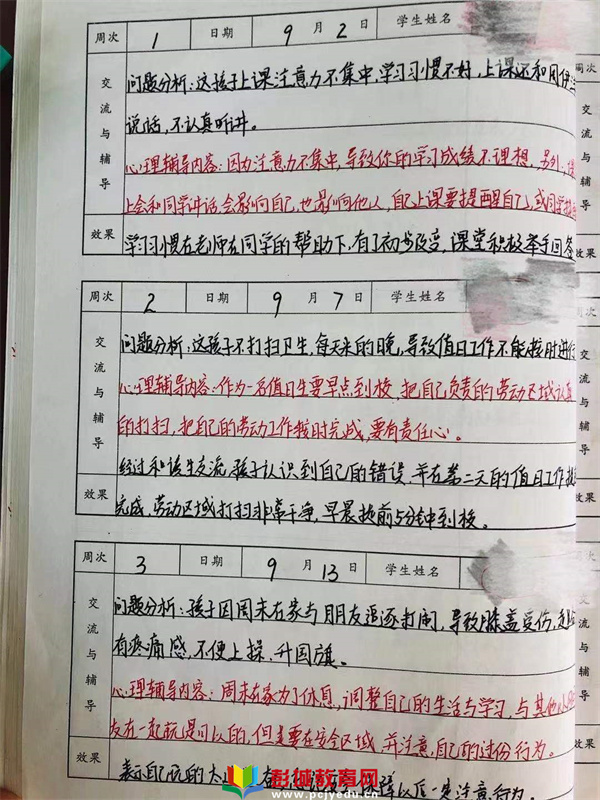 周次 1 日期 9月2日 学生姓名
交流与辅导 问题分析:这孩子上课注意力不集中,学习习惯不好,上课还和同伴
说话,不认真听讲。
心理辅导内容:因为注意力不集中,导致你的学习成绩不理想,另外,
上会和同学讲话,会影响自己,也影响他人,自己上课要提醒自己,或同学
效果 学习习惯在老师在同学的帮助下,有了初步改变,课堂积极举手回答
周次 2 日期 9月7日 学生姓名
交流与辅导 问题分析:这孩子不打扫卫生,每天来的晚,导致值日工作不能按时进行
心理辅导内容:作为一名值日生要早点到校,把自己负责的劳动区域认真
的打扫,把自己的劳动工作按时完成,要有责任心。
经过和该生交流,孩子认识到自己的错误,并在第二天的值日工作
效果 完成,劳动区域打扫非常干净,早晨提前5分钟到校。
周次 3 日期 9月13日 学生姓名
交流与辅导 问题分析:孩子因周末在家与朋友追逐打闹,导致膝盖受伤,
有疼痛感,不便上操,升国旗。
心理辅导内容:周末在家为了休息,调整自己的生活与学习,与其他
友在一起玩是可以的,但是要在安全区域,并注意自己的过份行为。
效果 表示自己玩的太 以后一定注意行为。
彭城教育网
www.pcjyedu.cn